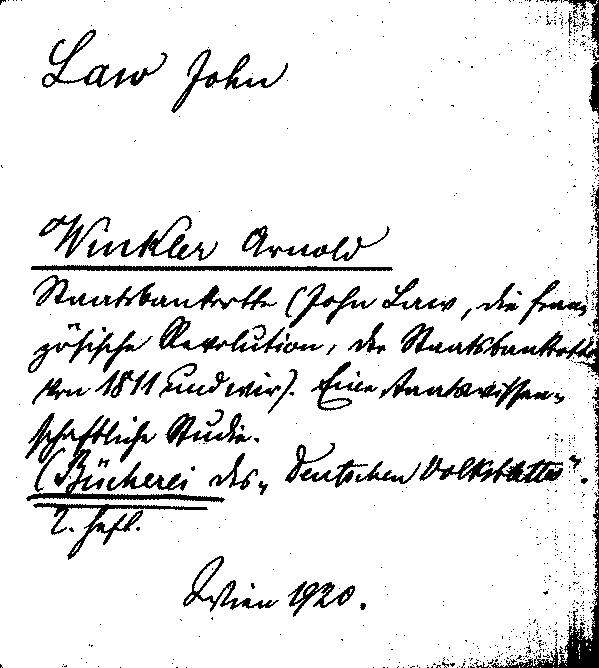 Law John
Winkler Arnold
Staatsbankrotte (John Law, die fran-
zösische Revolution, der Staatsbankrott
von 1811 und wir). Eine staatswissen-
schaftliche Studie.
(Bücherei des „Deutschen Volksblattes".
2. Heft.
Wien 1920.